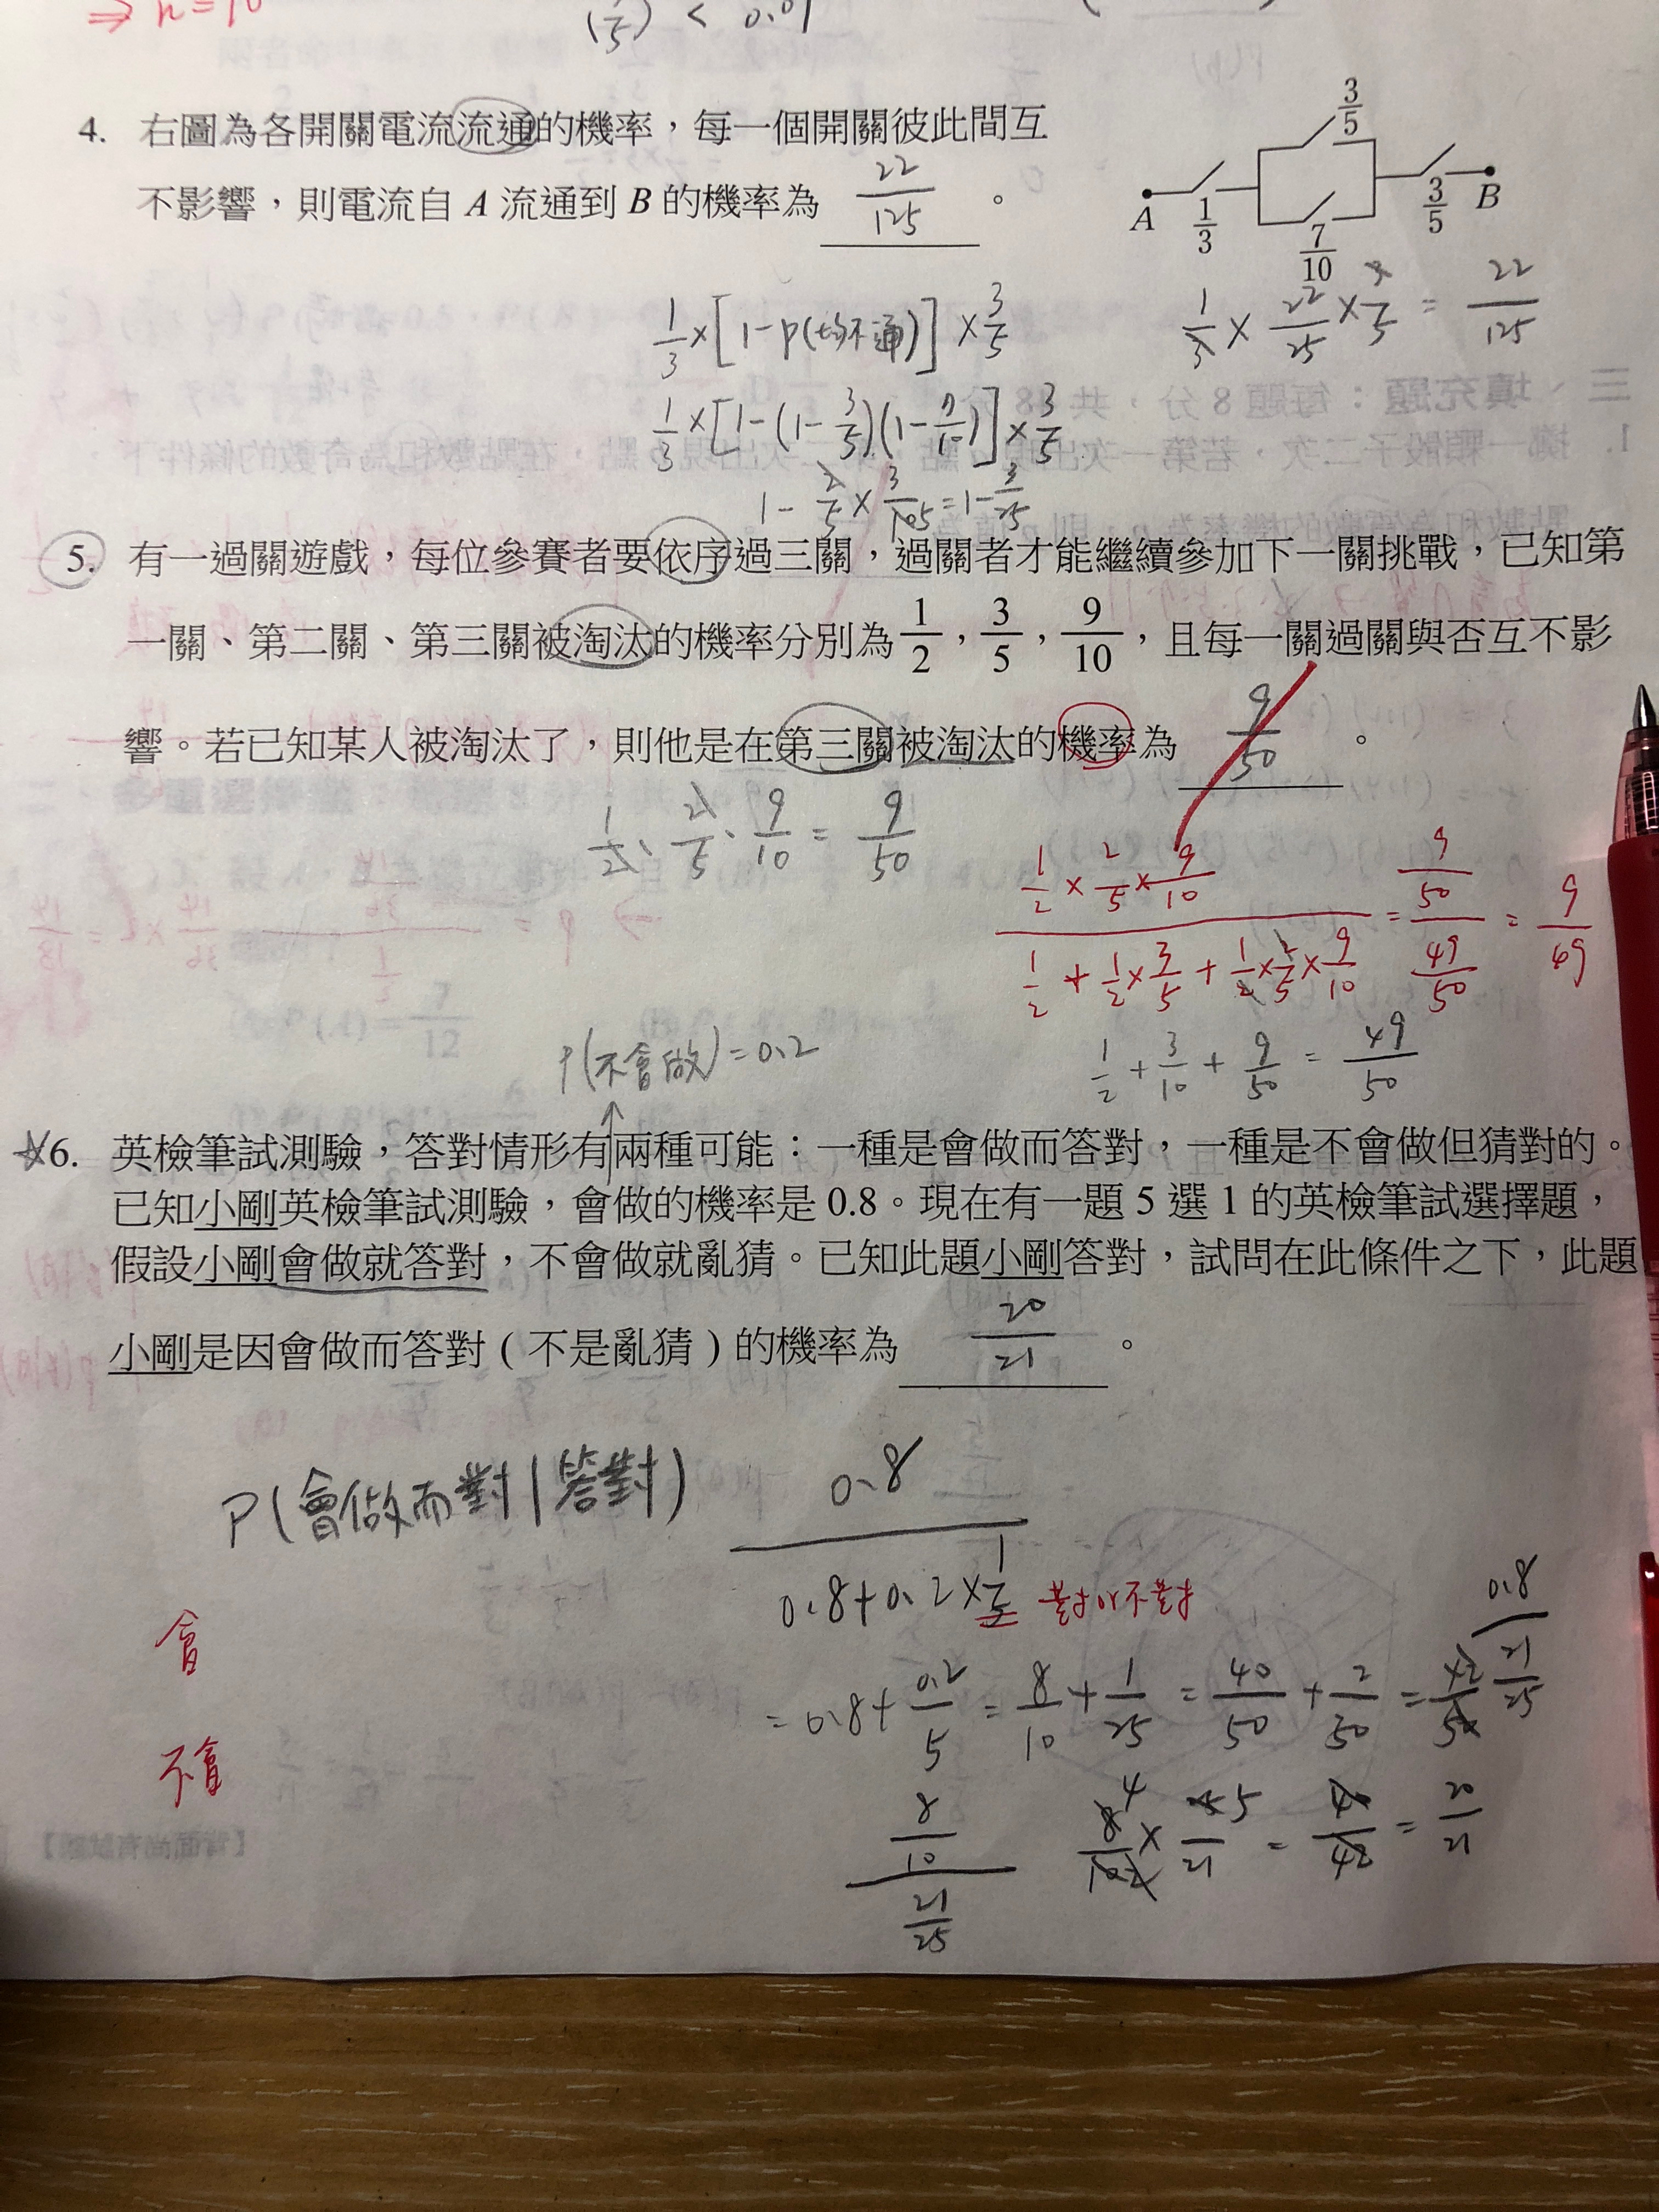 ⇒ n=10
(1/5) < 0.01
4. 右圖為各開關電流流通的機率，每一個開關彼此間互
不影響，則電流自 A 流通到 B 的機率為 22/125 。
3/5
A 1/3 7/10 3/5 B
1/3 × [1-P(均不通)] × 3/5
1/3 × 22/25 × 3/5 = 22/125
1/3 × [1-(1-3/5)(1-7/10)] × 3/5
1 - 2/5 × 3/10 5 = 1 - 3/25
5. 有一過關遊戲，每位參賽者要依序過三關，過關者才能繼續參加下一關挑戰，已知第
一關、第二關、第三關被淘汰的機率分別為 1/2，3/5，9/10，且每一關過關與否互不影
響。若已知某人被淘汰了，則他是在第三關被淘汰的機率為 9/50 。
1/2 · 2/5 · 9/10 = 9/50
1/2 × 2/5 × 9/10 / 1/2 + 1/2 × 3/5 + 1/2 × 2/5 × 9/10 = 9/50 / 49/50 = 9/49
1/2 + 3/10 + 9/50 = 49/50
P(不會做) = 0.2
☆6. 英檢筆試測驗，答對情形有兩種可能：一種是會做而答對，一種是不會做但猜對的。
已知小剛英檢筆試測驗，會做的機率是 0.8。現在有一題 5 選 1 的英檢筆試選擇題，
假設小剛會做就答對，不會做就亂猜。已知此題小剛答對，試問在此條件之下，此題
小剛是因會做而答對（不是亂猜）的機率為 20/21 。
P(會做而對|答對) 0.8 / 0.8+0.2×1/5 對or不對
會
0.8 / 21/25
= 0.8 + 0.2/5 = 8/10 + 1/25 = 40/50 + 2/50 = 42/50
不會
8/10 / 21/25
8/10 × 25/21 = 40/42 = 20/21